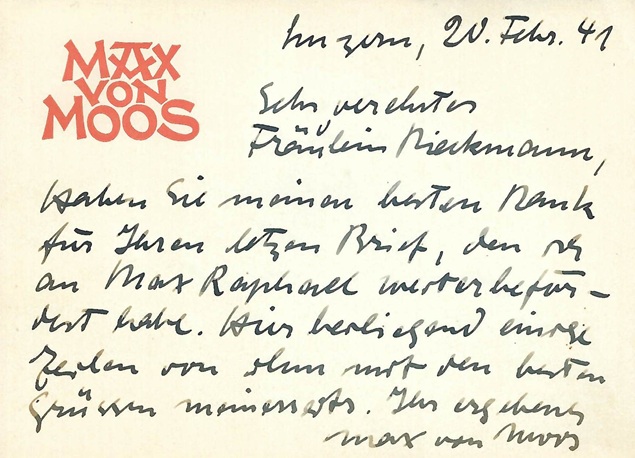 MAX
VON
MOOS
Luzern, 20. Febr. 41
Sehr verehrtes
Fräulein Dieckmann,
Haben Sie meinen besten Dank
für Ihren letzten Brief, den ich
an Max Raphael weiterbeför-
dert habe. Hier beiliegend einige
Zeilen von ihm mit den besten
Grüssen meinerseits. Ihr ergebener
Max von Moos